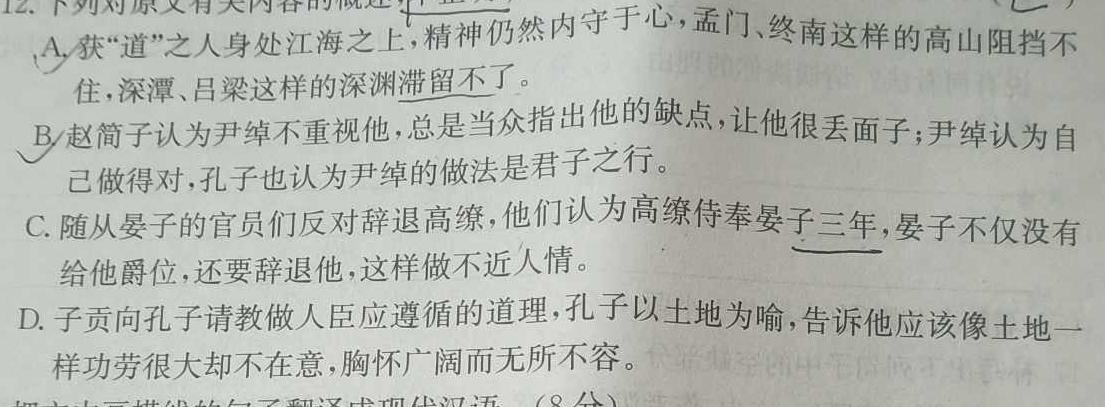 12. 下列对原文有关内容的概述，不正
A. 获“道”之人身处江海之上，精神仍然内守于心，孟门、终南这样的高山阻挡不
住，深潭、吕梁这样的深渊滞留不了。
B. 赵简子认为尹绰不重视他，总是当众指出他的缺点，让他很丢面子；尹绰认为自
己做得对，孔子也认为尹绰的做法是君子之行。
C. 随从晏子的官员们反对辞退高缭，他们认为高缭侍奉晏子三年，晏子不仅没有
给他爵位，还要辞退他，这样做不近人情。
D. 子贡向孔子请教做人臣应遵循的道理，孔子以土地为喻，告诉他应该像土地一
样功劳很大却不在意，胸怀广阔而无所不容。
把文中画横线的句子翻译成现代汉语。（8分）